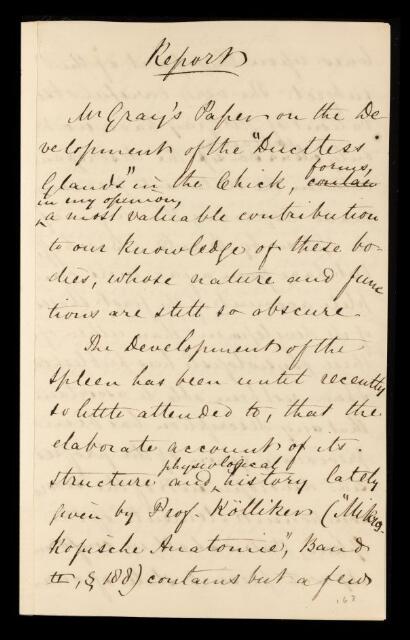 Report
Mr Gray's Paper on the De-
velopment of the "Ductless
Glands" in the Chick, forms,
in my opinion,
a most valuable contribution
to our knowledge of these bo-
dies, whose nature and func
tions are still so obscure.
The Development of the
Spleen has been until recently
so little attended to, that the
elaborate account of its
structure and physiological history lately
given by Prof. Kölliker ("Mikros-
kopische Anatomie", Band
II, § 188) contains but a few
163